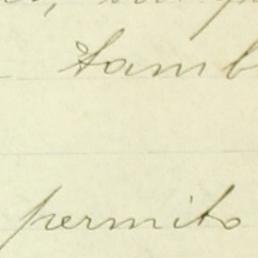 tamb
permito